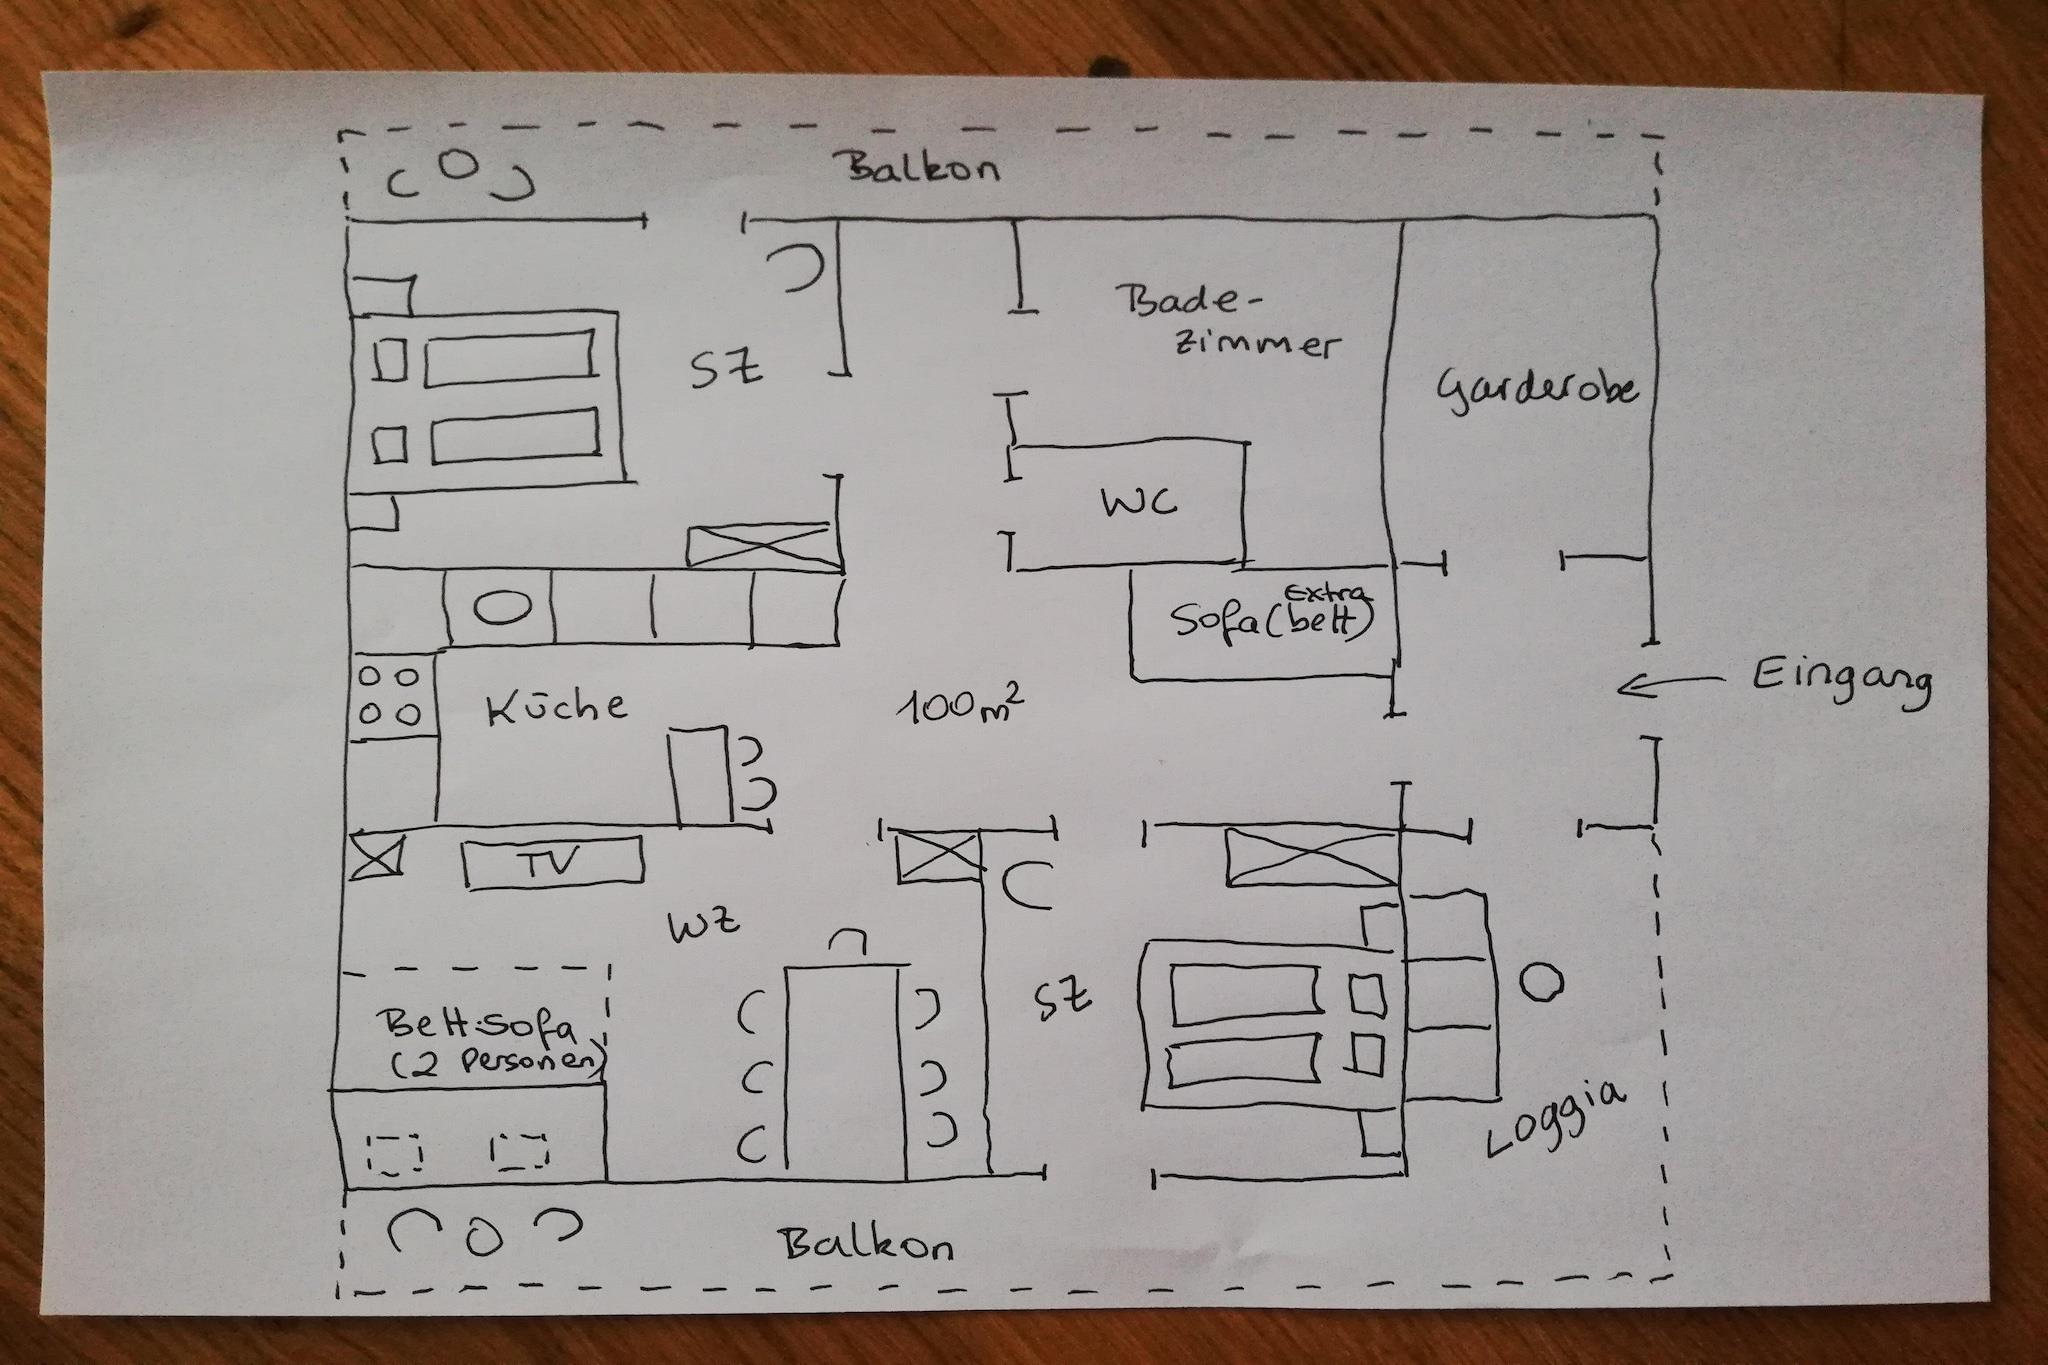 Balkon
Bade-
zimmer
SZ
Garderobe
WC
Extra
Sofa (bett)
Küche
100m²
Eingang
TV
WZ
SZ
Bett-Sofa
(2 Personen)
Loggia
Balkon